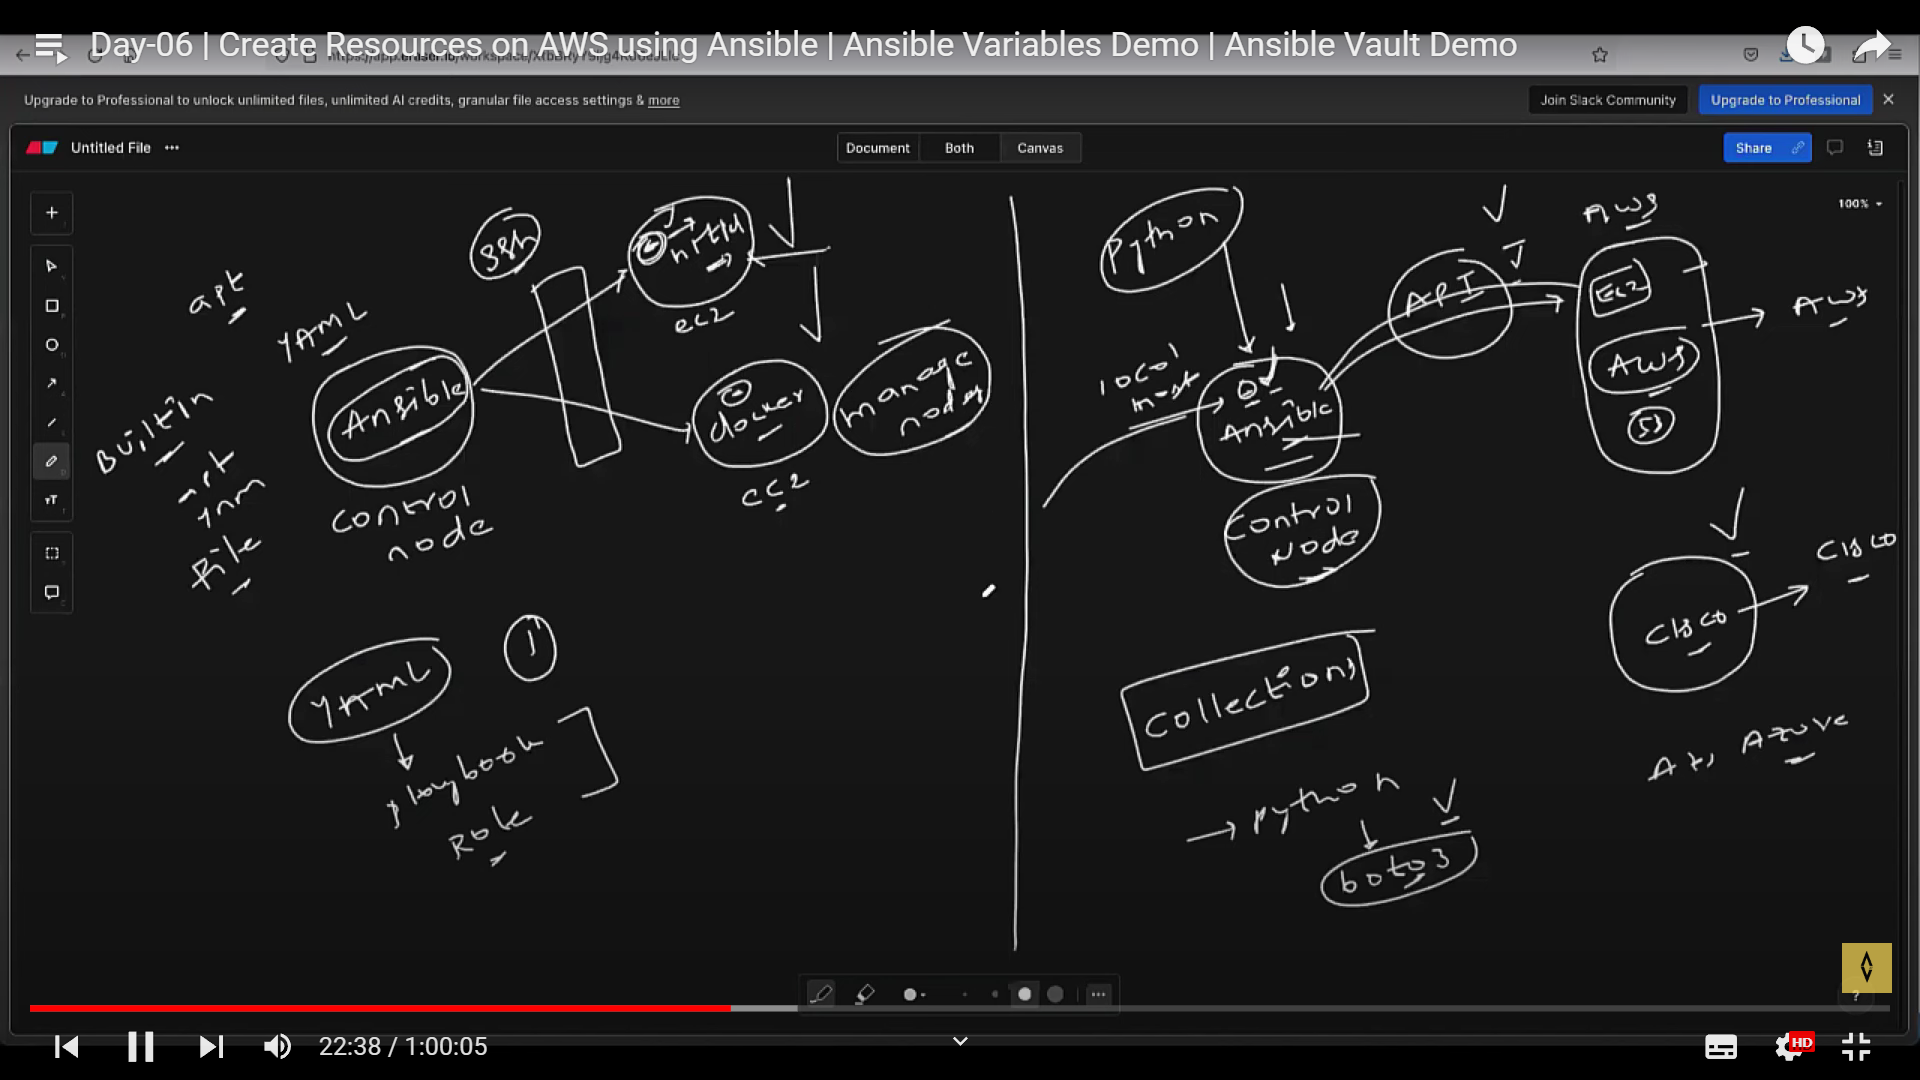 Day-06 | Create Resources on AWS using Ansible | Ansible Variables Demo | Ansible Vault Demo
Upgrade to Professional to unlock unlimited files, unlimited AI credits, granular file access settings & more
Join Slack Community
Upgrade to Professional
Untitled File
Document
Both
Canvas
Share
100%
ssh
apt
YAML
Ansible
control
node
BuiltIn
file
ec2
docker
ec2
manage
nodes
YAML
1
playbook
Role
Python
API
AWS
EC2
AWS
S3
AWS
Ansible
Control
Node
Cisco
Cisco
Collections
Azure
python
boto3
22:38 / 1:00:05
HD